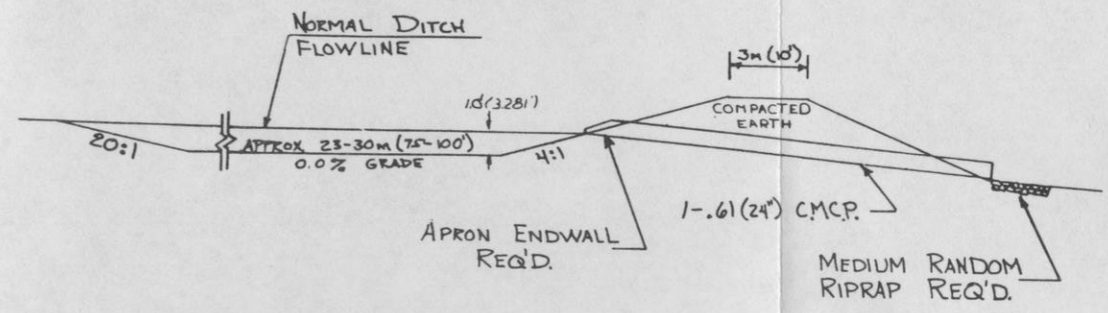 NORMAL DITCH
FLOWLINE
3m (10')
1.0 (3.281')
COMPACTED
EARTH
20:1
APPROX 23-30m (75-100')
0.0% GRADE
4:1
1-.61 (24") C.M.C.P.
APRON ENDWALL
REQ'D.
MEDIUM RANDOM
RIPRAP REQ'D.